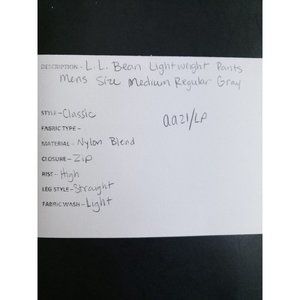 DESCRIPTION - L.L. Bean Lightweight Pants
Mens Size Medium Regular Gray
STYLE - Classic
aa21/LP
FABRIC TYPE -
MATERIAL - Nylon Blend
CLOSURE - Zip
RISE - High
LEG STYLE - Straight
FABRIC WASH - Light